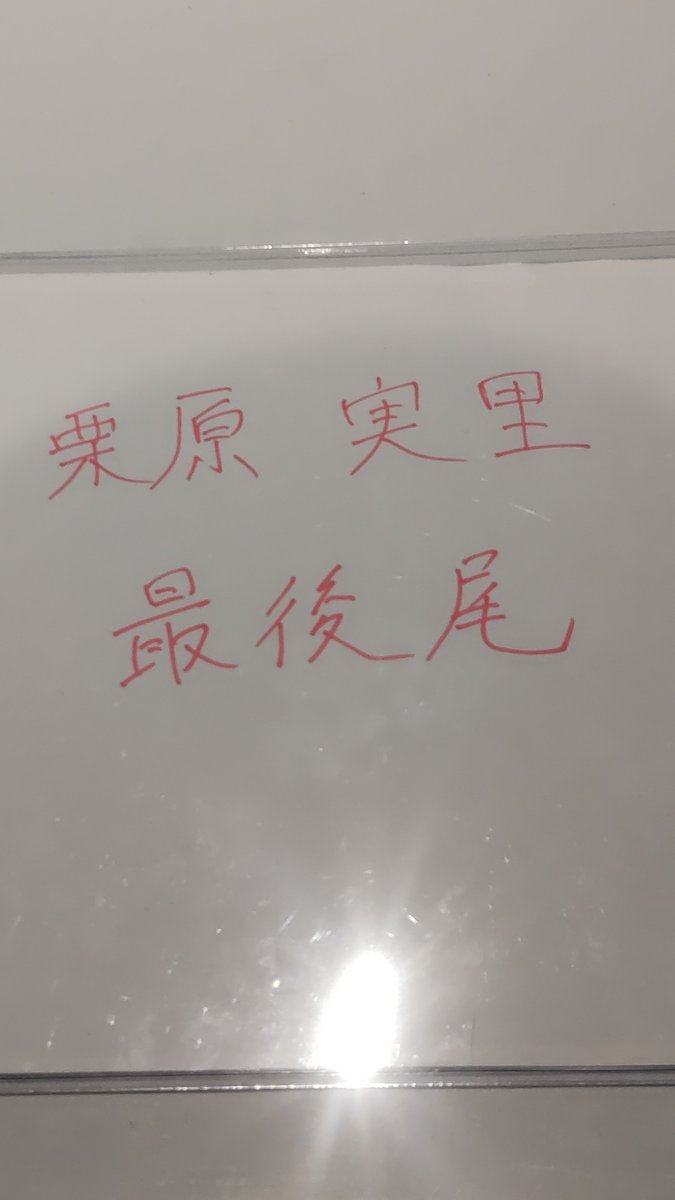 栗原 実里
最後尾